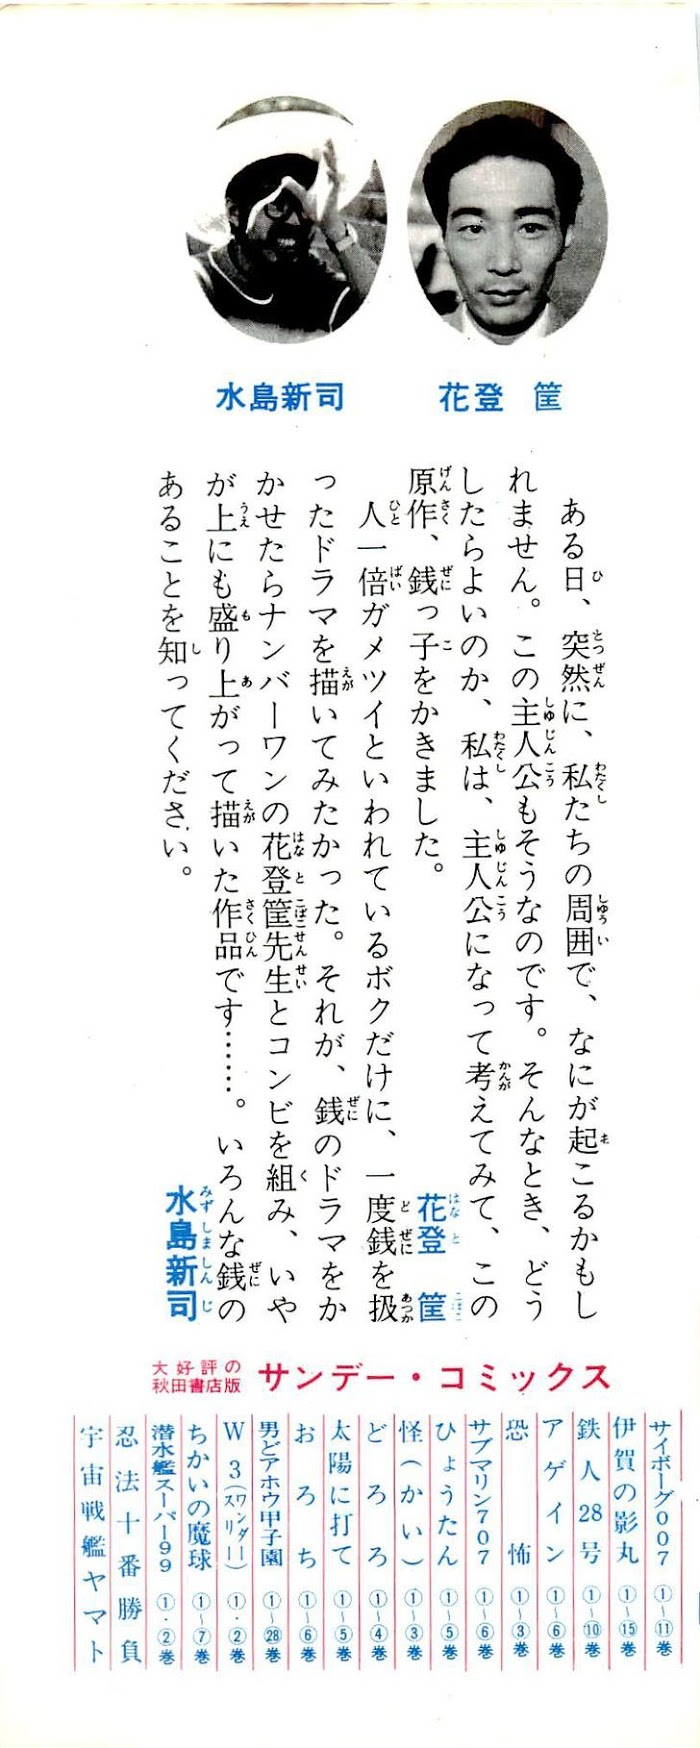 花登　筐
水島新司
ある日、突然に、私たちの周囲で、なにが起こるかもし
れません。この主人公もそうなのです。そんなとき、どう
したらよいのか、私は、主人公になって考えてみて、この
原作、銭っ子をかきました。
花登　筐
人一倍ガメツイといわれているボクだけに、一度銭を扱
ったドラマを描いてみたかった。それが、銭のドラマをか
かせたらナンバーワンの花登筐先生とコンビを組み、いや
が上にも盛り上がって描いた作品です……。いろんな銭の
あることを知ってください。
水島新司
大好評の
秋田書店版
サンデー・コミックス
サイボーグ007 ①～⑪巻
伊賀の影丸 ①～⑮巻
鉄人28号 ①～⑩巻
アゲイン ①～⑥巻
恐怖 ①～③巻
サブマリン707 ①～⑥巻
ひょうたん ①～⑤巻
怪(かい) ①～③巻
どろろ ①～④巻
太陽に打て ①～⑤巻
おろち ①～⑥巻
男どアホウ甲子園 ①～㉘巻
W3(ワンダースリー) ①・②巻
ちかいの魔球 ①～⑦巻
潜水艦スーパー99 ①・②巻
忍法十番勝負
宇宙戦艦ヤマト